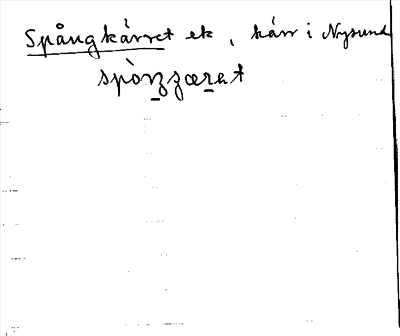 Spångkärret ek, kärr i Nysund
spònzzæret